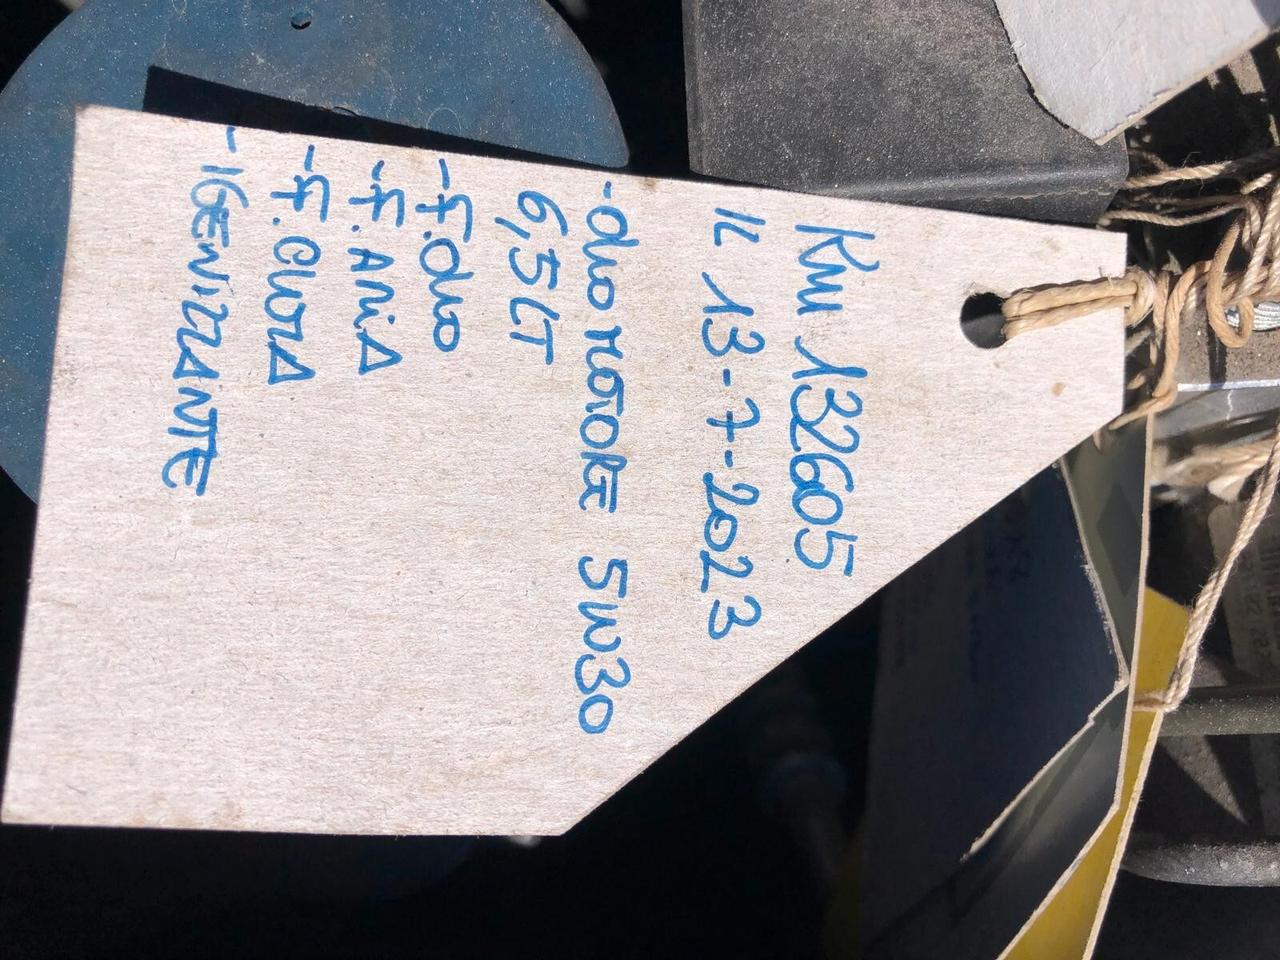 Km 132605
IL 13-7-2023
-OLIO MOTORE 5W30
6,5 LT
-F.OLIO
-F.ARIA
-F.CLIMA
-IGENIZZANTE